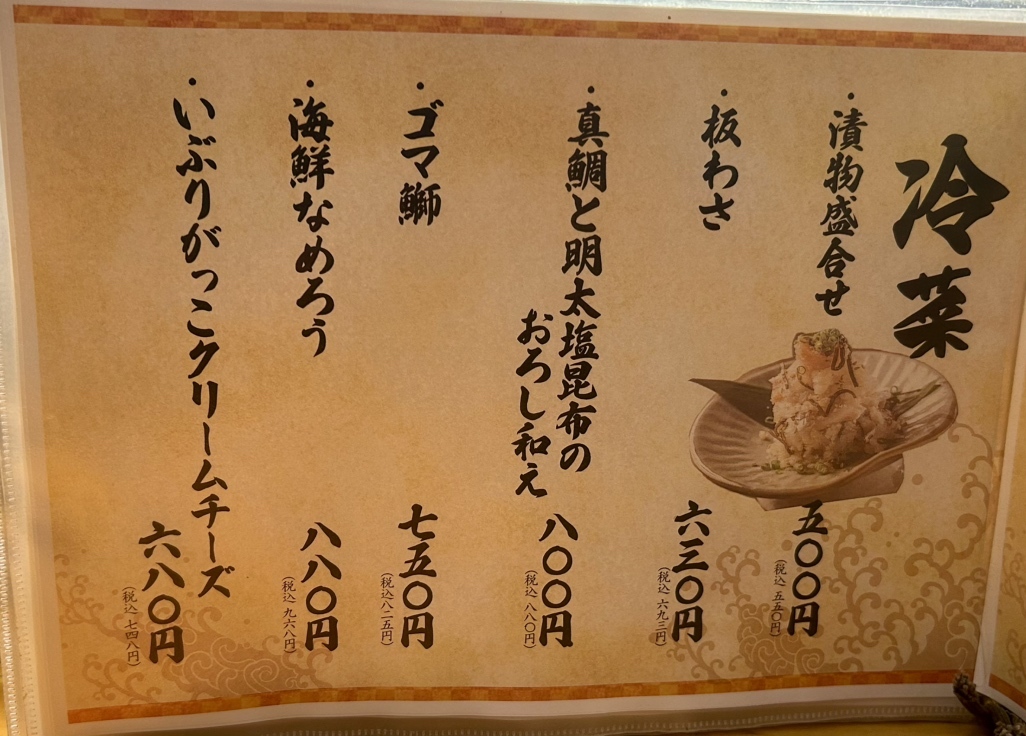 冷菜
・漬物盛合せ
五〇〇円
(税込 五五〇円)
・板わさ
六三〇円
(税込 六九三円)
・真鯛と明太塩昆布の
おろし和え
八〇〇円
(税込 八八〇円)
・ゴマ鰤
七五〇円
(税込 八二五円)
・海鮮なめろう
八八〇円
(税込 九六八円)
・いぶりがっこクリームチーズ
六八〇円
(税込 七四八円)